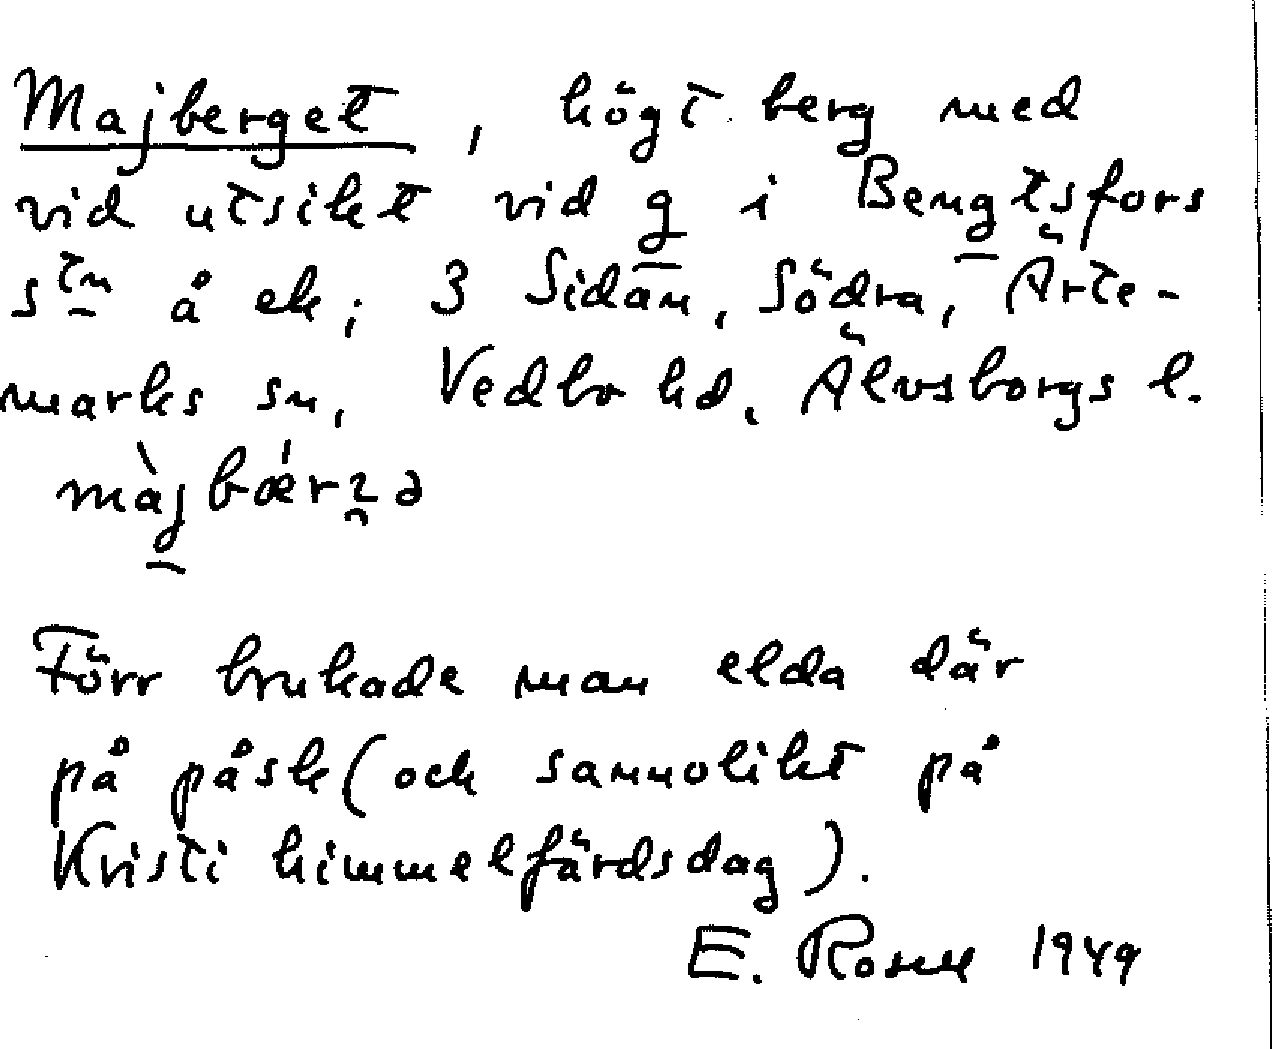 Majberget, högt berg med
vid utsikt vid g i Bengtsfors
stn å ek; 3 Sidan, Södra, Ärte-
marks sn, Vedbo hd, Älvsborgs l.
Förr brukade man elda där
på påsk (och sannolikt på
Kristi himmelfärdsdag).
E. Rosell 1949